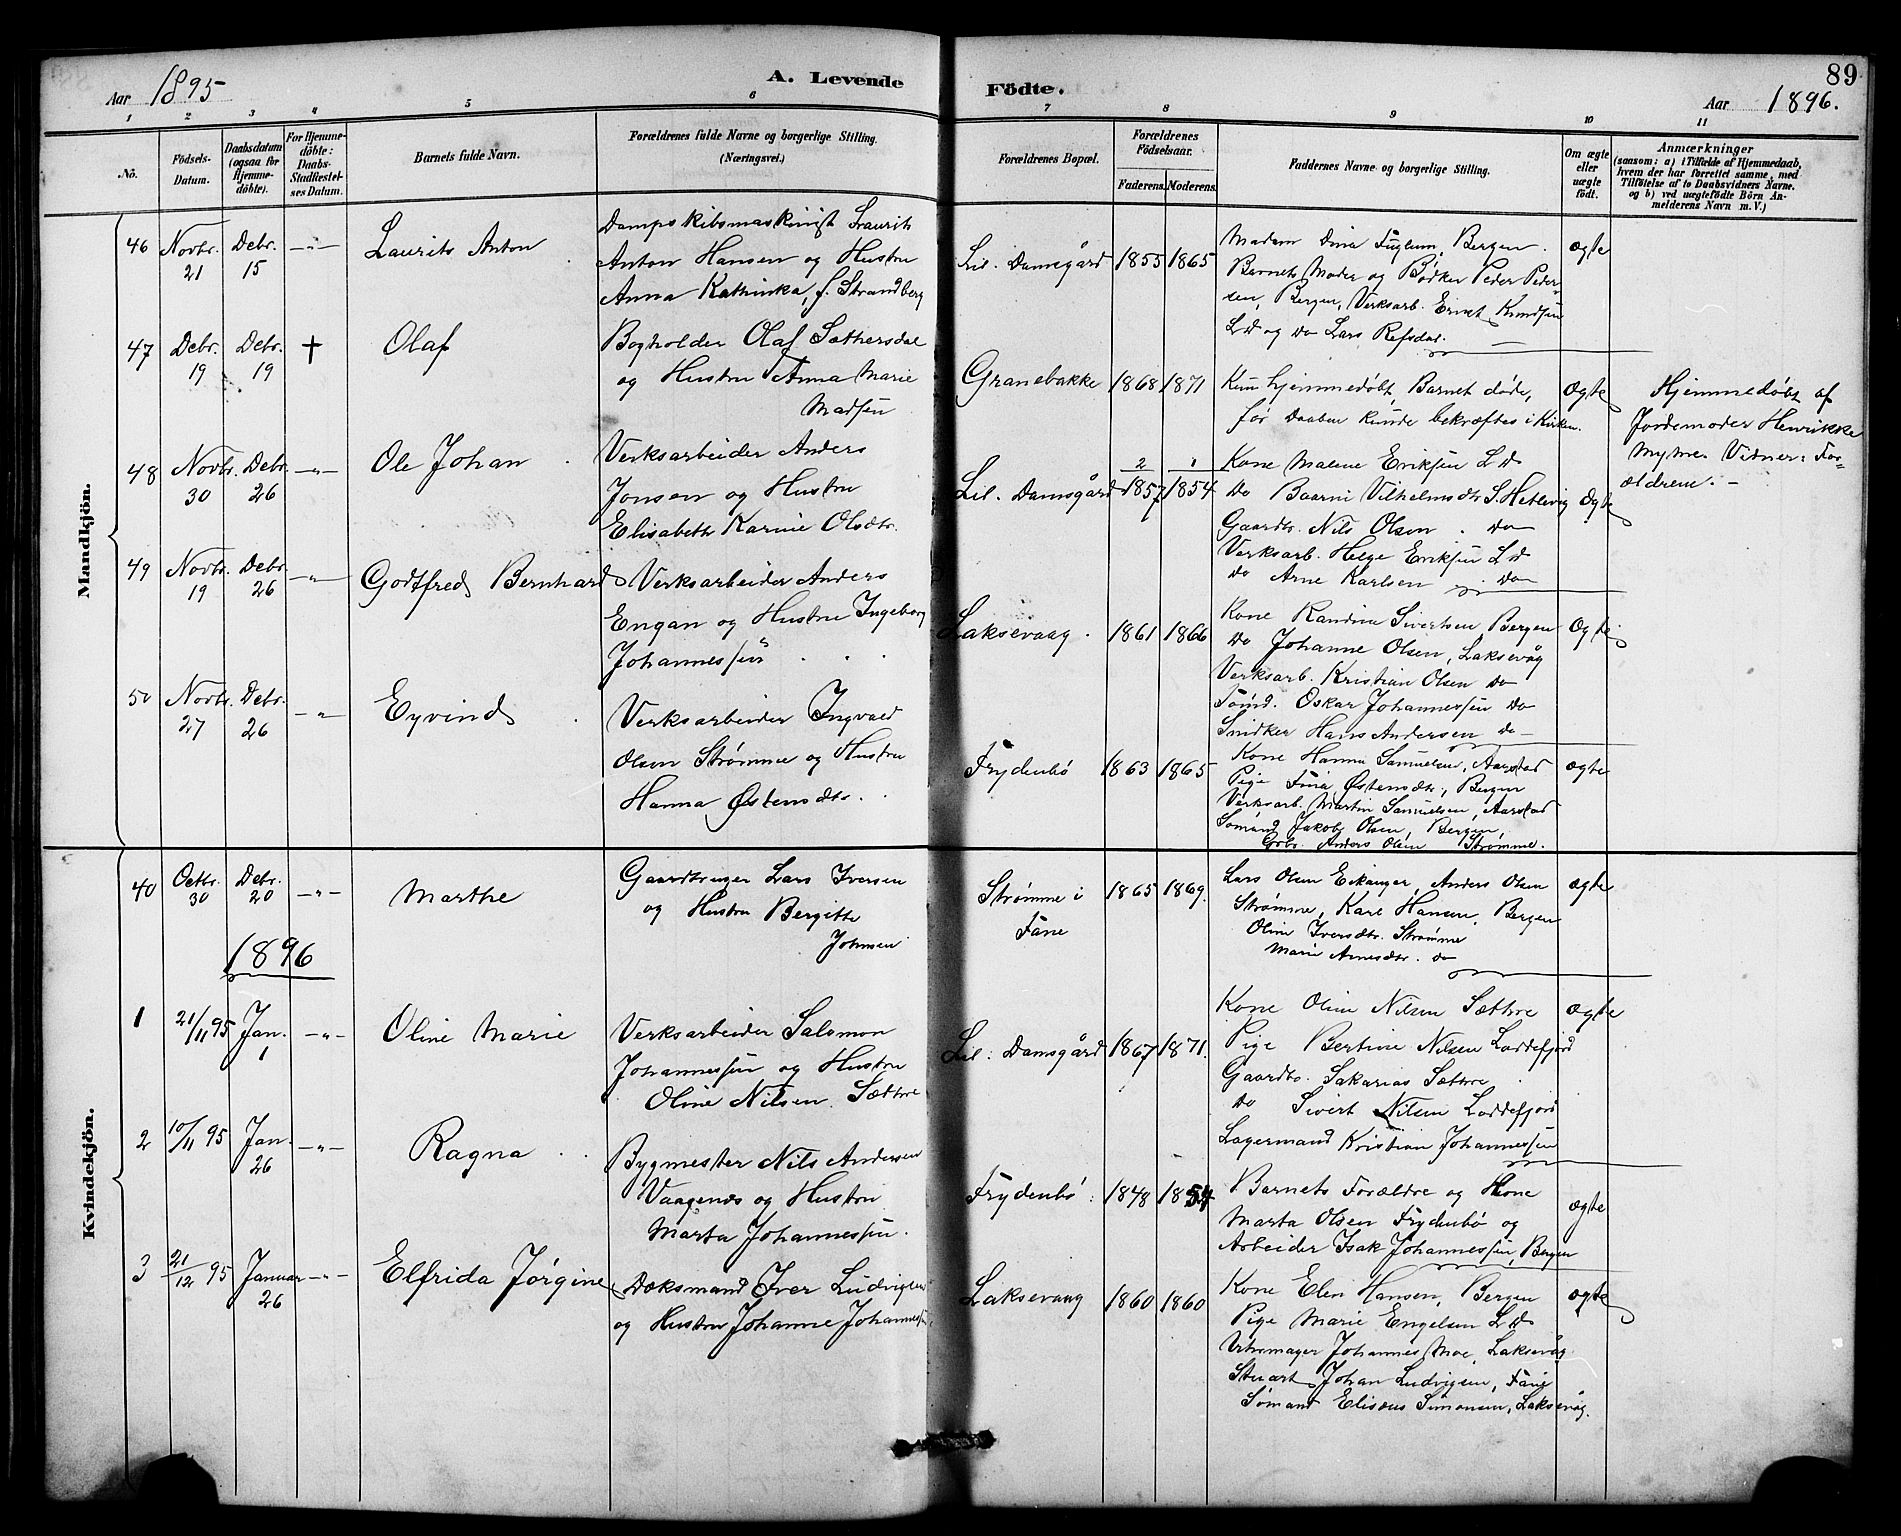 Aar 1895
A. Levende
Födte.
Aar 1896.
89
1 2 3 4 5 6 7 8 9 10 11
No.
Födsels-
Datum.
Daabsdatum
(ogsaa for
Hjemme-
döbte).
For Hjemme-
döbte:
Daabs-
Stadfæstel-
ses Datum.
Barnets fulde Navn.
Forældrenes fulde Navne og borgerlige Stilling.
(Næringsvei.)
Forældrenes Bopæl.
Forældrenes
Födselsaar.
Faderens.
Moderens.
Faddernes Navne og borgerlige Stilling.
Om ægte
eller
uægte
födt.
Anmærkninger
(saasom: a) i Tilfælde af Hjemmedaab,
hvem der har forrettet samme, med
Tilföielse af to Daabsvidners Navne.
og b) ved uægtefödte Börn An-
melderens Navn m. V.)
Mandkjön.
46
Novbr.
21
Debr.
15
—"—
Laurits Anton
Dampskibsmaskinist Laurits
Anton Hansen og Hustru
Anna Kathinka, f. Strandberg
Lil. Damsgård
1855
1865
Madam Dina Fuglum, Bergen.
Barnets Moder og Bödker Peder Peder-
sen, Bergen, Verksarb. Ernst Knudsen
L d og do Lars Refsdal.
ægte
47
Debr.
19
Debr.
19
†
Olaf
Bogholder Olaf Sæthersdal
og Hustru Anna Marie
Madsen
Granebakke
1868
1871
Kun hjemmedøbt, Barnet døde,
før Daaben kunde bekræftes i Kirken.
Ægte
Hjemmedøbt af
Jordemoder Henrikke
Myme. Vidner: For-
ældrene. –
48
Novbr.
30
Debr.
26
—"—
Ole Johan
Verksarbeider Anders
Jonsen og Hustru
Elisabeth Karine Olsdtr.
Lil. Damsgård
2
1857
1
1854
Kone Malene Eriksen L d
do Baarni Vilhelmsdtr. S. Hetlevig
Gaardbr. Nils Olsen do
Verksarb. Helge Eriksen L d
do Arne Karlsen do
Ægte
49
Novbr.
19
Debr.
26
—"—
Godtfred Bernhard
Verksarbeider Anders
Engan og Hustru Ingeborg
Johannessen
Laksevaag.
1861
1866
Kone Randina Sivertsen Bergen
do Johanne Olsen, Laksevåg
Verksarb. Kristian Olsen do
Sömd. Oskar Johannessen do
Snidker Hans Andersen do
Ægte
50
Novbr.
27
Debr.
26
—"—
Eyvind
Verksarbeider Ingvald
Olsen Strømme og Hustru
Hanna Østensdtr.
Frydenbö
1863
1865
Kone Hanna Samuelsen, Aarstad
Pige Østensdtr., Bergen
Verksarb. Martin Samuelsen, Aarstad
Sömand Jakob Olsen, Bergen,
Gbr. Anders Olsen Strømme.
ægte
Kvindekjön.
40
Octbr.
30
Debr.
20
—"—
Marthe
Gaardbruger Lars Iversen
og Hustru Bergitte
Johnsen
Strømme i
Fane
1865
1869.
Lars Olsen Eikanger, Anders Olsen
Strømme, Karl Hansen, Bergen
Oline Iversdtr. Strømme
Marie Arnesdtr. do
ægte
1896
1
21/11 95
Jan.
1
—"—
Oline Marie
Verksarbeider Salomon
Johannessen og Hustru
Oline Nilsen Sæthre
Lil. Damsgård
1867
1871.
Kone Oline Nilsen Sæthre
Pige Bertine Nilsen Loddefjord
Gaardbr. Sakarias Sæthre
do Sivert Nilsen Loddefjord
Lagermand Kristian Johannessen
ægte
2
10/11 95
Jan.
26
—"—
Ragna
Bygmester Nils Andersen
Vaagenes og Hustru
Marta Johannessen.
Frydenbö.
1848
1854
Barnets Forældre og Kone
Marta Olsen Frydenbö og
Arbeider Isak Johannessen, Bergen
ægte
3
21/12 95
Januar
26
—"—
Elfrida Jørgine
Dæksmand Iver Ludvigsen
og Hustru Johanne Johannessen
Laksevaag
1860
1860
Kone Elen Hansen, Bergen
Pige Marie Engelsen L d
Uhrmager Johannes Moe, Laksevåg
Stuart Johan Ludvigsen, Fane
Sömand Elisæus Simonsen, Laksevåg.
ægte